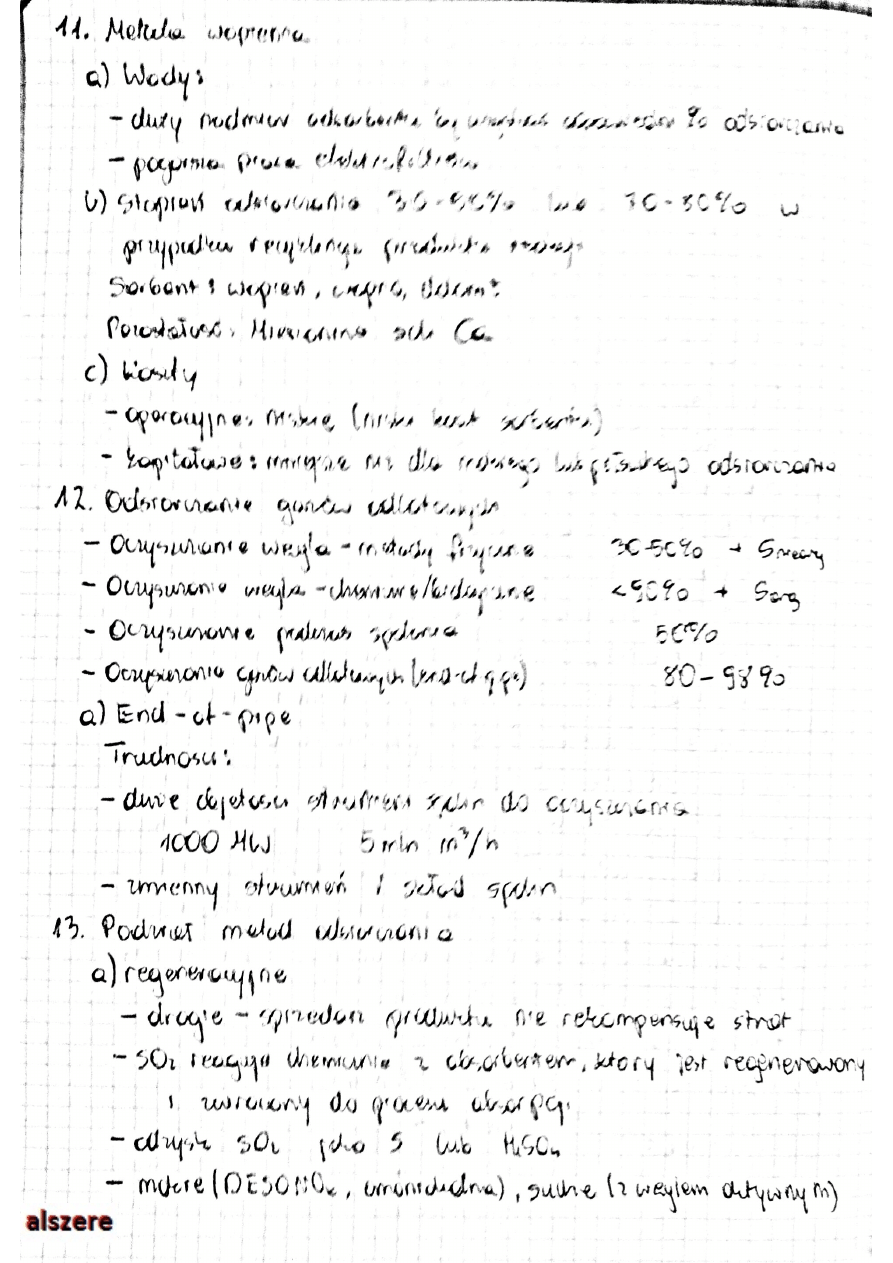 11. Metoda wapienna
a) Wady:
- duży nadmiar % odsiarczania
- pogarsza praca elektrofiltrów
b) Stopień odsiarczania 30-50% lub 70-80% w
przypadku recyklingu produktu
Sorbent: wapień, wapno, dolomit
Pozostałość: Mieszanina soli Ca
c) Koszty
- operacyjne: niskie (niski koszt sorbentu)
- kapitałowe: mniejsze niż dla mokrego lub półsuchego odsiarczania
12. Odsiarczanie gazów odlotowych
- Oczyszczanie węgla - metody fizyczne 30-50%
- Oczyszczanie węgla - chemiczne/biologiczne <90% + Sorg
- Oczyszczanie podczas spalania 50%
- Oczyszczanie gazów odlotowych (end-of-pipe) 80-98%
a) End-of-pipe
Trudności:
- duże objętości strumieni spalin do oczyszczania
1000 MW 5 mln m³/h
- zmienny strumień i skład spalin
13. Podział metod odsiarczania
a) regeneracyjne
- drogie - sprzedaż produktu nie rekompensuje strat
- SO₂ reaguje chemicznie z absorbentem, który jest regenerowany
i zawracany do procesu absorpcji
- odzysk SO₂ jako S lub H₂SO₄
- mokre (DESONOx, ), suche (z węglem aktywnym)
alszere